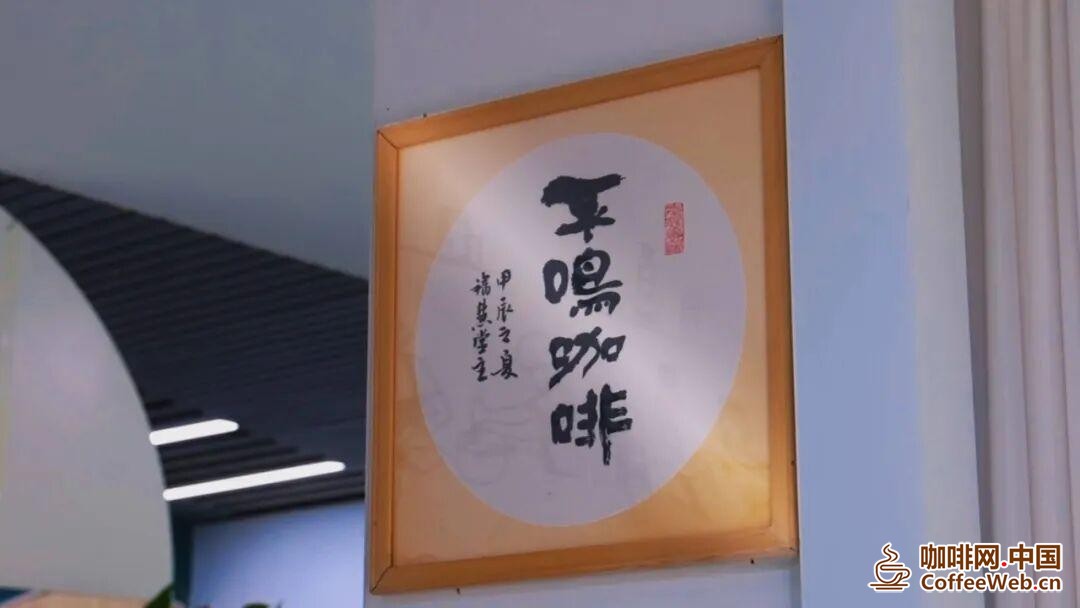 平鳴咖啡
甲辰之夏
福慧堂主
咖啡网.中国
CoffeeWeb.cn